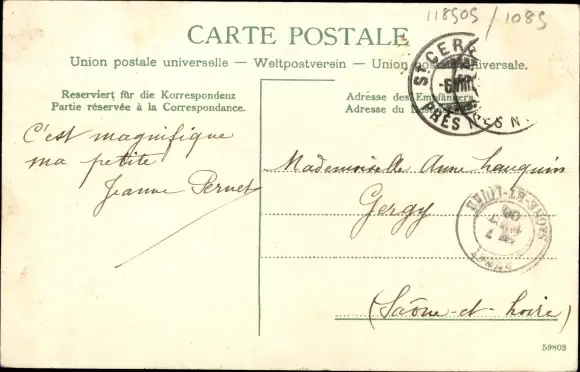 118505 / 1085
CARTE POSTALE
Union postale universelle — Weltpostverein — Union postale universale.
Reserviert für die Korrespondenz
Partie réservée à la Correspondance.
Adresse des Empfängers
Adresse du
C'est magnifique
ma petite
Jeanne Pernet
Mademoiselle Anne Lauquin
Gergy
(Saône-et-Loire)
ST CERGUE
PRÈS NYON
SAONE-ET-LOIRE
GERGY
59803